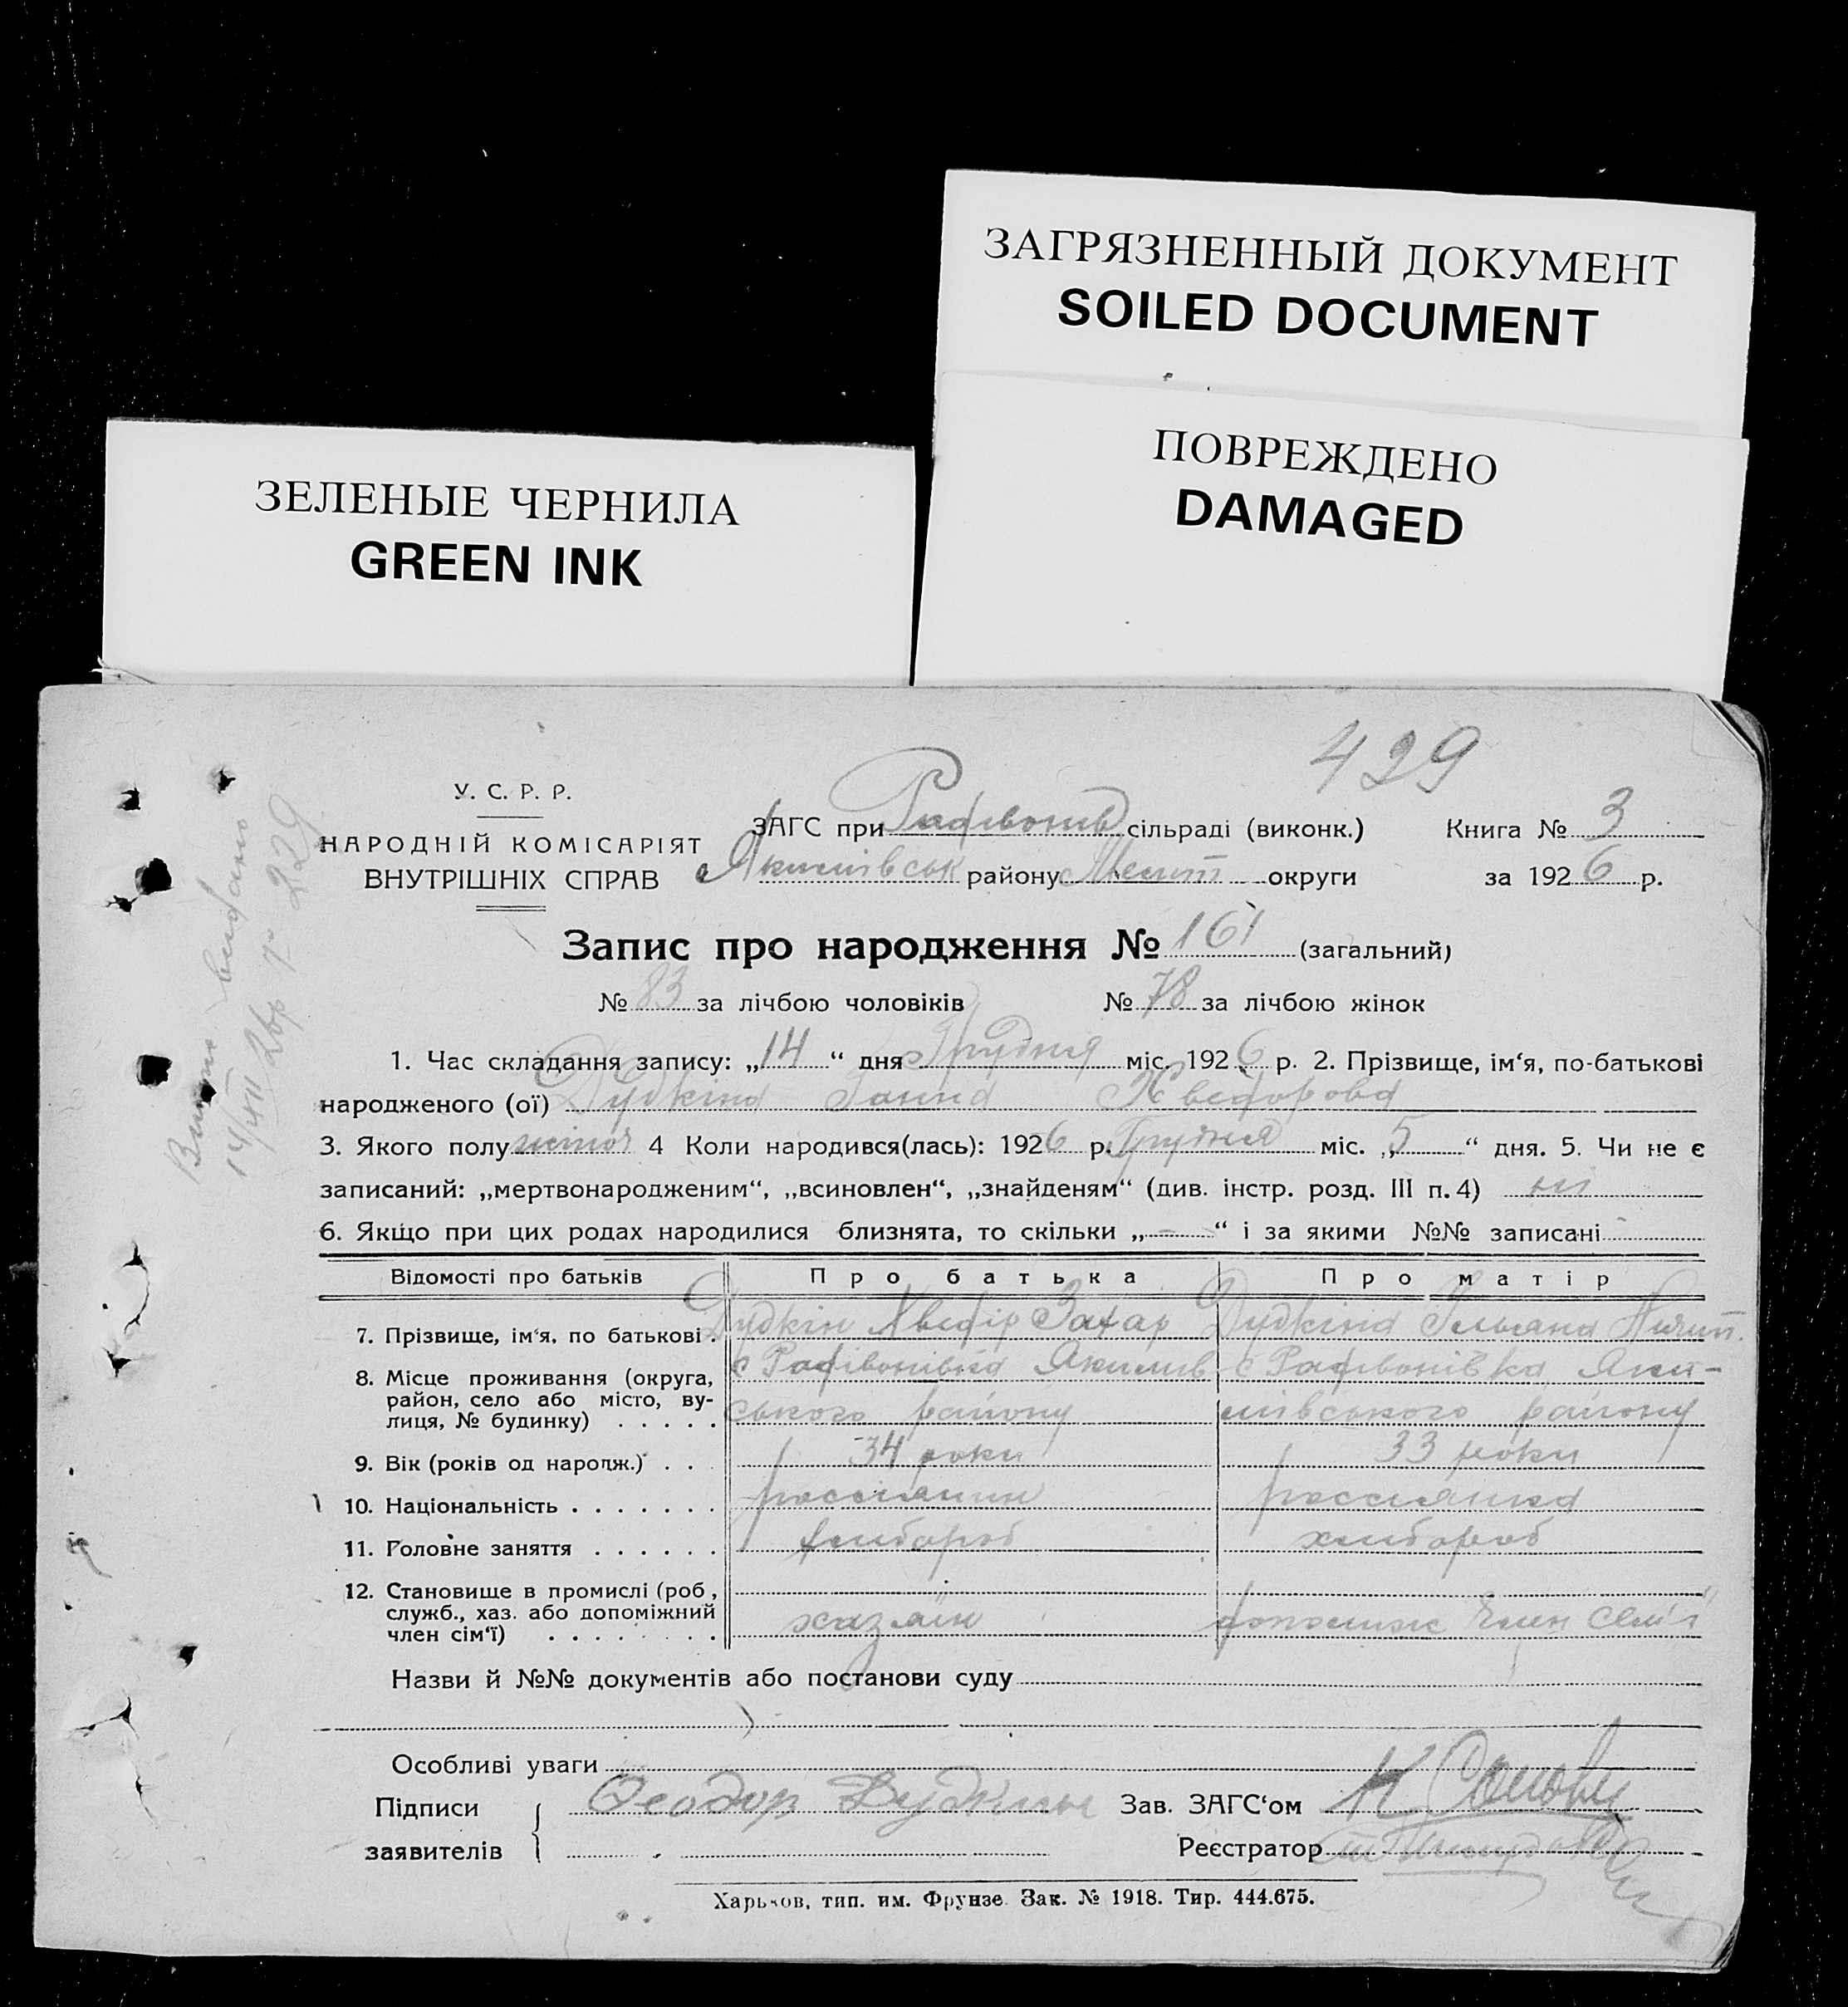 ЗАГРЯЗНЕННЫЙ ДОКУМЕНТ
SOILED DOCUMENT
ПОВРЕЖДЕНО
DAMAGED
ЗЕЛЕНЫЕ ЧЕРНИЛА
GREEN INK
429
У. С. Р. Р.
НАРОДНІЙ КОМІСАРІЯТ
ВНУТРІШНІХ СПРАВ
ЗАГС при сільраді (виконк.) Книга № 3
району округи за 1926 р.
Запис про народження № 161 (загальний)
№ 83 за лічбою чоловіків № 78 за лічбою жінок
1. Час складання запису: „14“ дня Грудня міс. 1926 р. 2. Прізвище, ім‘я, по-батькові
народженого (ої) Дудкіна Ганна Хведорова
3. Якого полу жіноч 4 Коли народився(лась): 1926 р. Грудня міс. „5“ дня. 5. Чи не є
записаний: „мертвонародженим“, „всиновлен“, „знайденям“ (див. інстр. розд. III п. 4) ні
6. Якщо при цих родах народилися близнята, то скільки „—“ і за якими №№ записані
Відомості про батьків Про батька Про матір
7. Прізвище, ім‘я, по батькові . Дудкін Хведір Захар Дудкіна
8. Місце проживання (округа,
район, село або місто, ву-
лиця, № будинку) . . . . .
ського району мівського району
9. Вік (років од народж.) . . 34 роки 33 роки
10. Національність . . . . . . . россіянин россіянка
11. Головне заняття . . . . . . хлібороб хлібороб
12. Становище в промислі (роб,
служб., хаз. або допоміжний
член сім‘ї) . . . . . . . . хазяїн допоміж член сем'ї
Назви й №№ документів або постанови суду
Особливі уваги
Підписи
заявителів
Феодор Дудкин
Зав. ЗАГС‘ом
Реєстратор
Харьков, тип. им. Фрунзе. Зак. № 1918. Тир. 444.675.